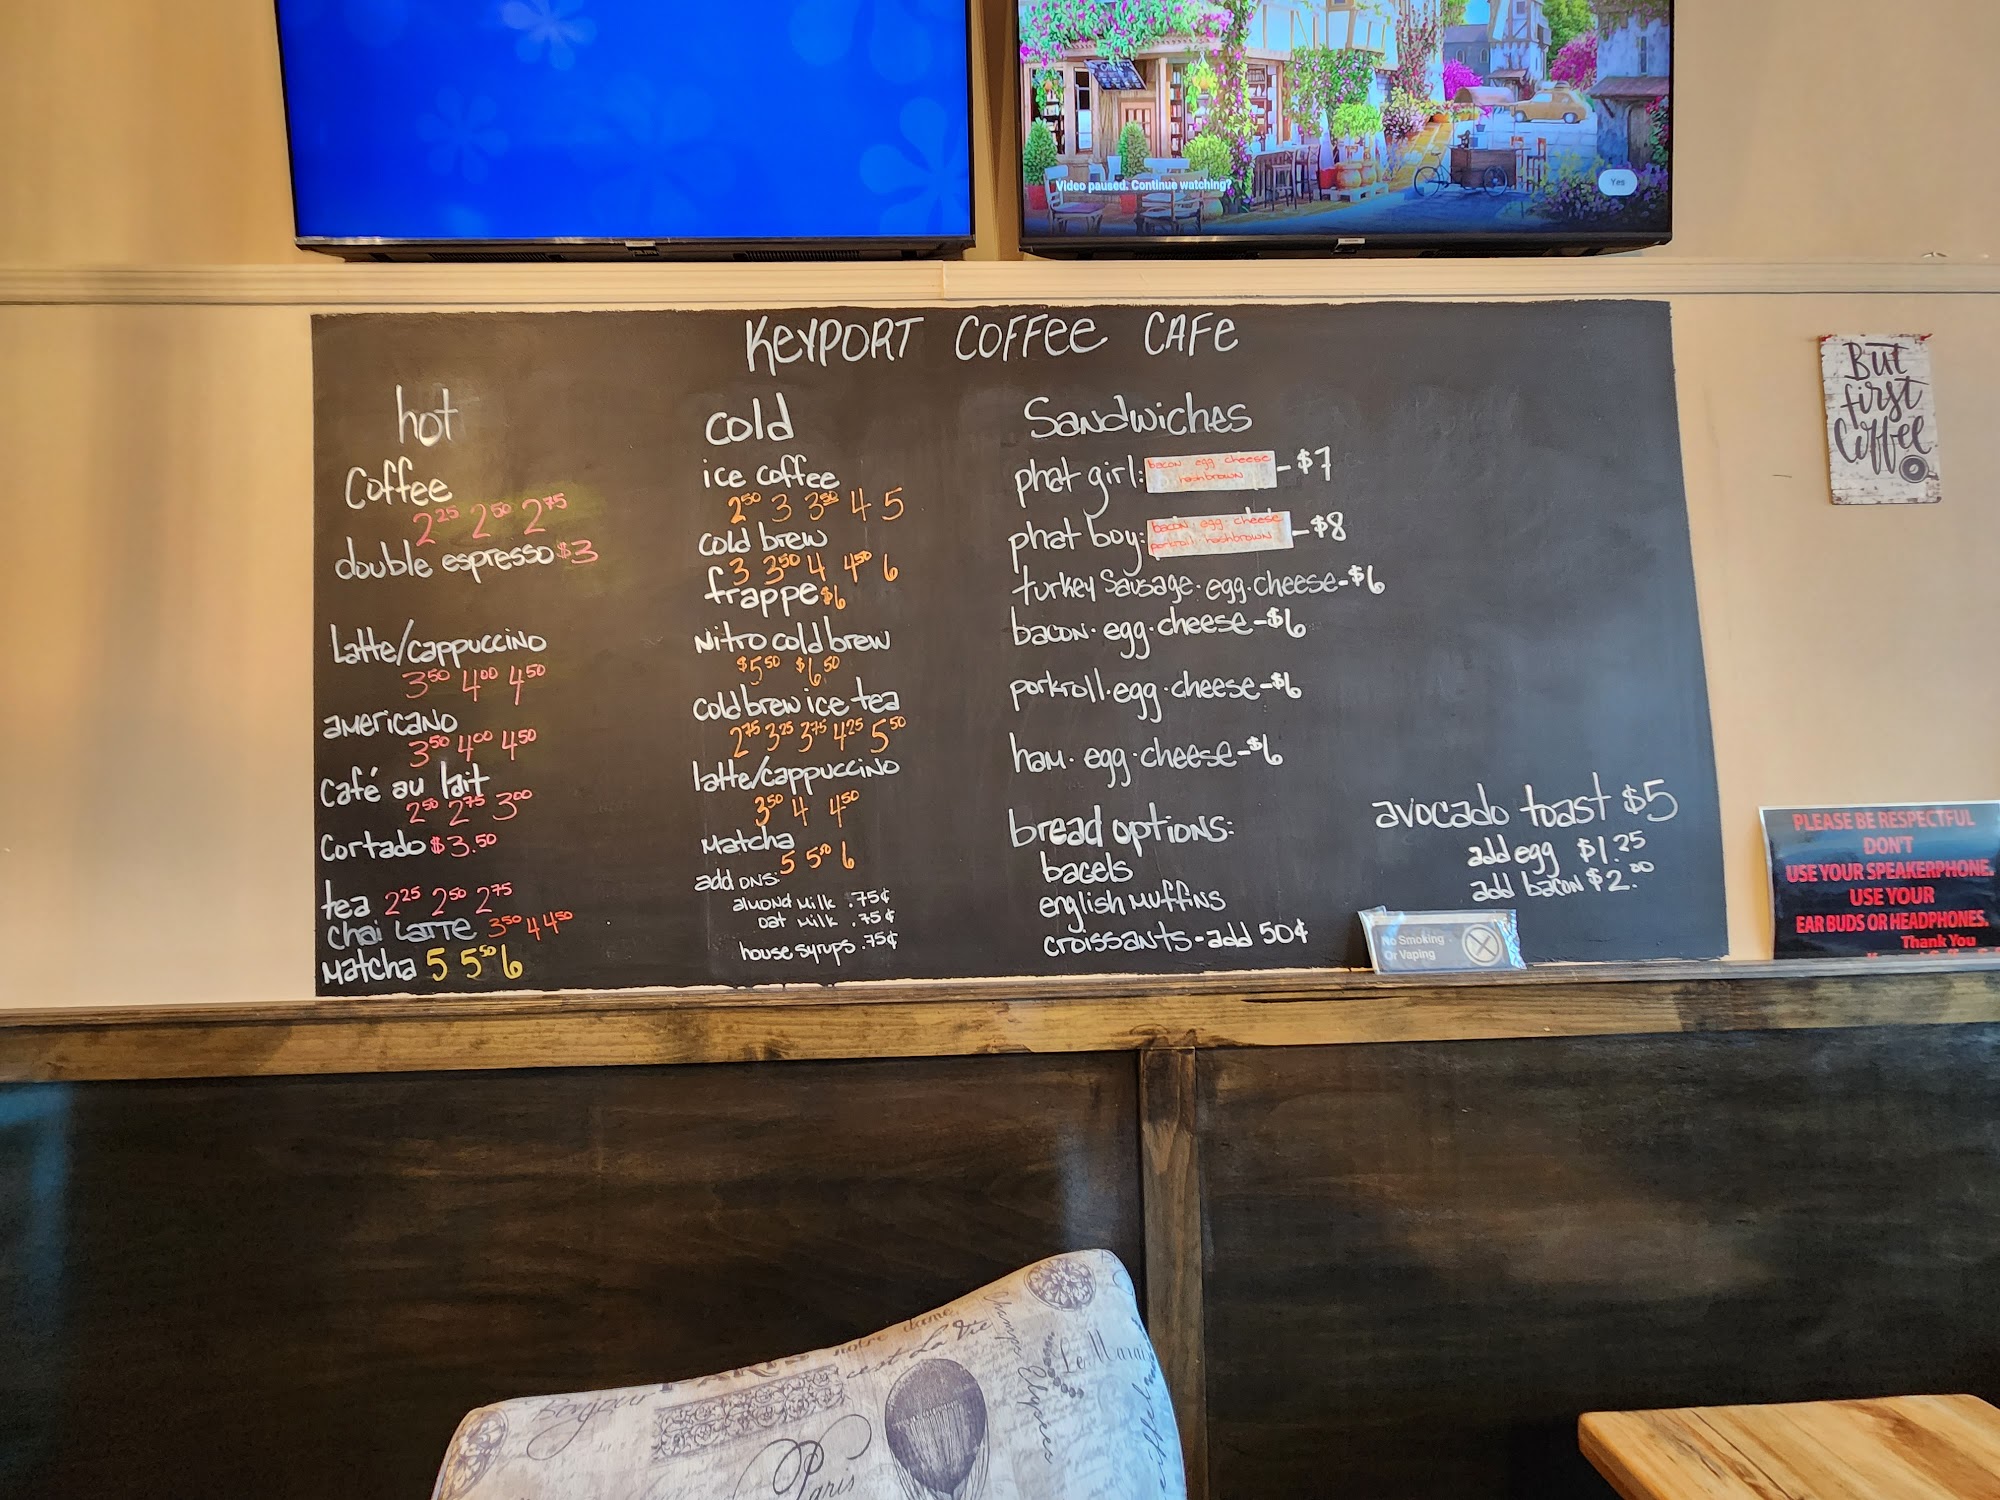 Video paused. Continue watching?
Yes
KEYPORT COFFEE CAFE
hot
Coffee
2²⁵ 2⁵⁰ 2⁷⁵
double espresso $3
Latte/cappuccino
3⁵⁰ 4⁰⁰ 4⁵⁰
americano
3⁵⁰ 4⁰⁰ 4⁵⁰
Café au lait
2⁵⁰ 2⁷⁵ 3⁰⁰
Cortado $3.50
tea 2²⁵ 2⁵⁰ 2⁷⁵
Chai Latte 3⁵⁰ 4 4⁵⁰
Matcha 5 5⁵⁰ 6
cold
ice coffee
2⁵⁰ 3 3⁵⁰ 4 5
cold brew
3 3⁵⁰ 4 4⁵⁰ 6
frappe $6
Nitro cold brew
$5⁵⁰ $6⁵⁰
cold brew ice tea
2⁷⁵ 3²⁵ 3⁷⁵ 4²⁵ 5⁵⁰
latte/cappuccino
3⁵⁰ 4 4⁵⁰
Matcha
5 5⁵⁰ 6
add ons:
almond milk .75¢
oat milk .75¢
house syrups .75¢
Sandwiches
phat girl: bacon egg cheese hashbrown - $7
phat boy: bacon · egg · cheese porkroll hashbrown - $8
turkey Sausage · egg · cheese - $6
bacon · egg · cheese - $6
porkroll · egg · cheese - $6
ham · egg · cheese - $6
bread options:
bagels
english muffins
croissants - add 50¢
avocado toast $5
add egg $1.25
add bacon $2.⁰⁰
No Smoking
Or Vaping
But
first
Coffee
PLEASE BE RESPECTFUL
DON'T
USE YOUR SPEAKERPHONE.
USE YOUR
EAR BUDS OR HEADPHONES.
Thank You
Bonjour
notre dame
c'est La Vie
Champs Elysees
Le Marais
Paris